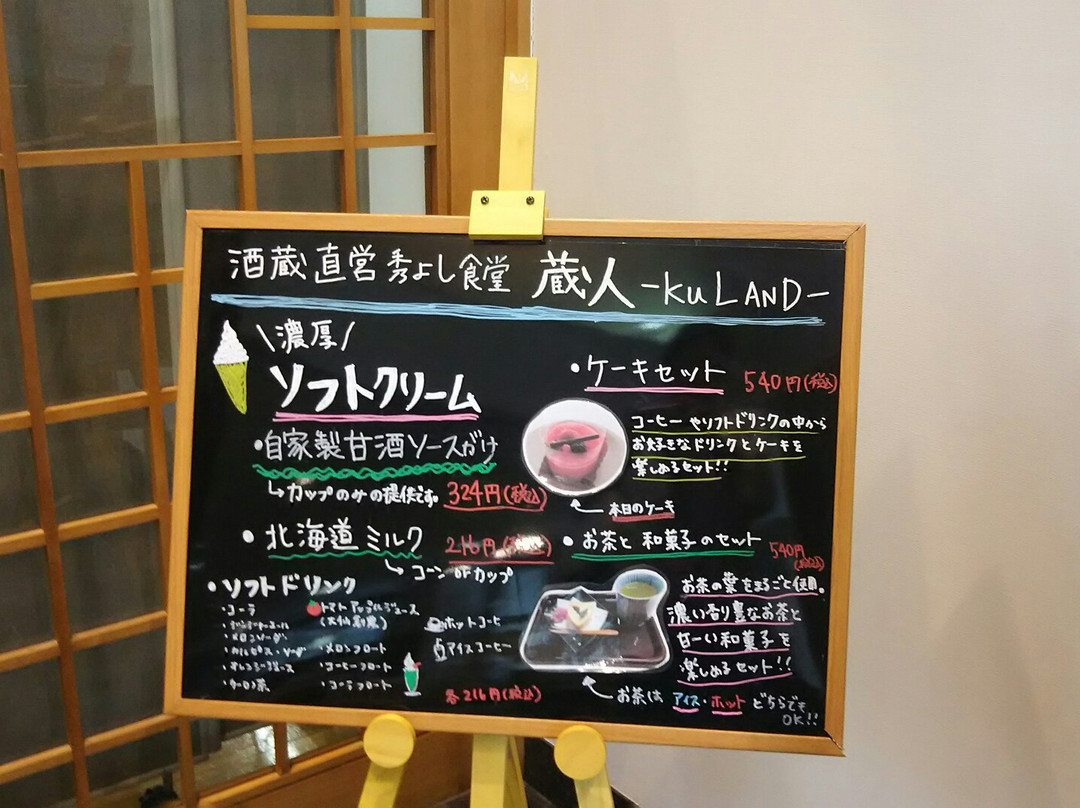 酒蔵直営秀よし食堂 蔵人 -Ku LAND-
\濃厚/
ソフトクリーム
・自家製甘酒ソースがけ
↳カップのみの提供です。 324円(税込)
・北海道ミルク 216円(税込)
↳コーン or カップ
・ソフトドリンク
・コーラ
・ジンジャーエール
・メロンソーダ
・カルピス・ソーダ
・オレンジジュース
・ウーロン茶
トマトアップルジュース
(大仙創農)
・メロンフロート
・コーヒーフロート
・コーラフロート
ホットコーヒー
アイスコーヒー
各216円(税込)
・ケーキセット 540円(税込)
コーヒーやソフトドリンクの中から
お好きなドリンクとケーキを
楽しめるセット!!
本日のケーキ
・お茶と和菓子のセット 540円(税込)
お茶の葉をまるごと使用。
濃い香り豊なお茶と
甘ーい和菓子を
楽しめるセット!!
お茶はアイス・ホットどちらでも
OK!!